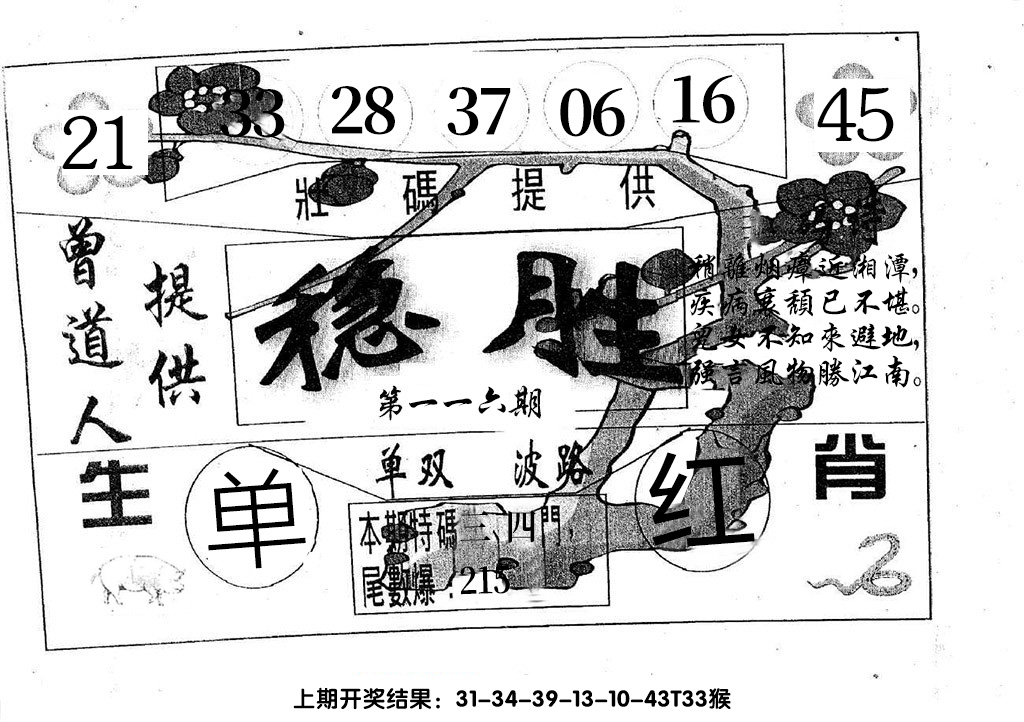 21 33 28 37 06 16 45
壯碼提供
曾道人
提供
稳胜
第一一六期
稍離烟瘴近湘潭，
疾病衰頹已不堪。
兒女不知來避地，
強言風物勝江南。
单双 波路
生肖
单
红
本期特碼三、四門，
尾數爆：215
上期开奖结果：31-34-39-13-10-43T33猴